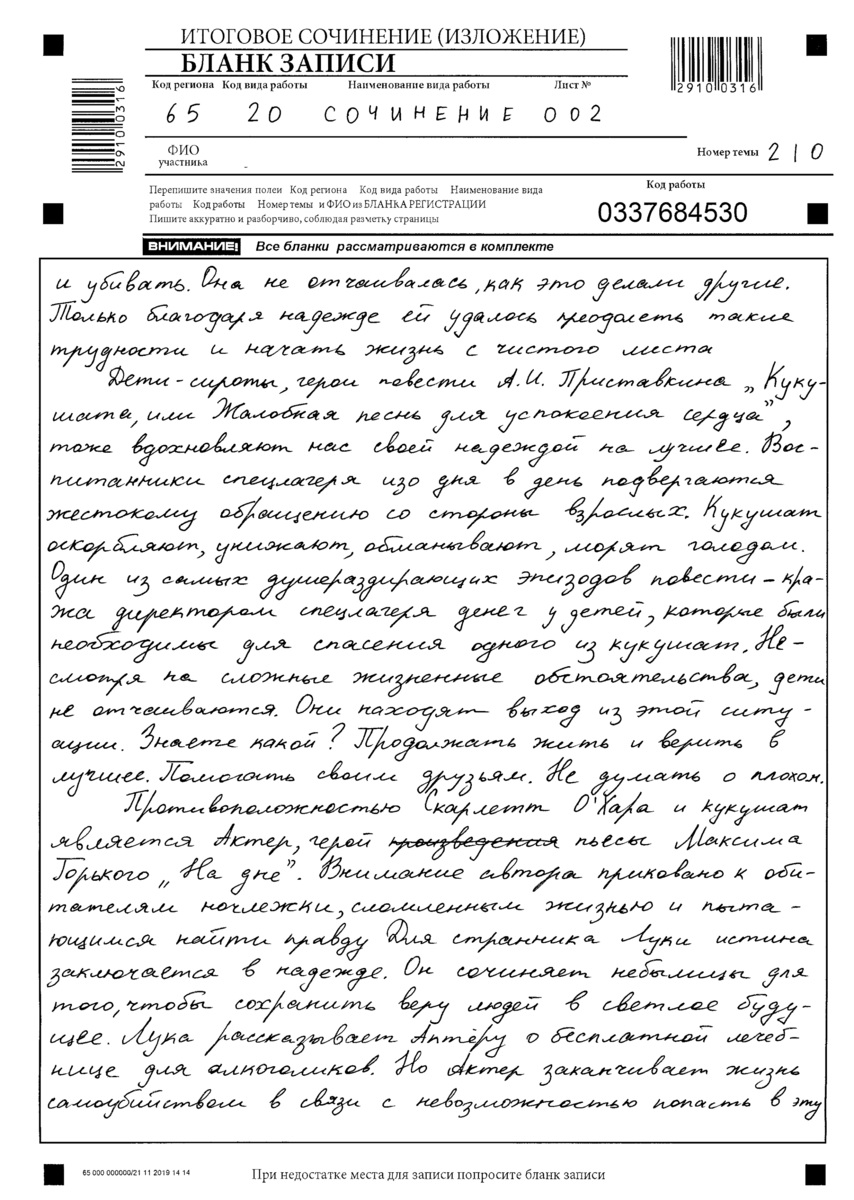 ИТОГОВОЕ СОЧИНЕНИЕ (ИЗЛОЖЕНИЕ)
БЛАНК ЗАПИСИ
Код региона Код вида работы Наименование вида работы Лист №
65 20 СОЧИНЕНИЕ 002
29100316
29100316
ФИО
участника
Номер темы 210
Перепишите значения полеи Код региона Код вида работы Наименование вида
работы Код работы Номер темы и ФИО из БЛАНКА РЕГИСТРАЦИИ
Пишите аккуратно и разборчиво, соблюдая разметку страницы
Код работы
0337684530
ВНИМАНИЕ! Все бланки рассматриваются в комплекте
и убивать. Она не отчаивалась, как это делали другие.
Только благодаря надежде ей удалось преодолеть такие
трудности и начать жизнь с чистого места
Дети-сироты, герои повести А.И. Приставкина „Куку-
шата, или Жалобная песнь для успокоения сердца”,
тоже вдохновляют нас своей надеждой на лучшее. Вос-
питанники спецлагеря изо дня в день подвергаются
жестокому обращению со стороны взрослых. Кукушат
оскорбляют, унижают, обманывают, морят голодом.
Один из самых душераздирающих эпизодов повести – кра-
жа директором спецлагеря денег у детей, которые были
необходимы для спасения одного из кукушат. Не-
смотря на сложные жизненные обстоятельства, дети
не отчаиваются. Они находят выход из этой ситу-
ации. Знаете какой? Продолжать жить и верить в
лучшее. Помогать своим друзьям. Не думать о плохом.
Противоположностью Скарлетт О'Хара и кукушат
является Актер, герой произведения пьесы Максима
Горького „На дне”. Внимание автора приковано к оби-
тателям ночлежки, сломленным жизнью и пыта-
ющимся найти правду Для странника Луки истина
заключается в надежде. Он сочиняет небылицы для
того, чтобы сохранить веру людей в светлое буду-
щее. Лука рассказывает Актёру о бесплатной лечеб-
нице для алкоголиков. Но Актер заканчивает жизнь
самоубийством в связи с невозможностью попасть в эту
65 000 000000/21 11 2019 14 14
При недостатке места для записи попросите бланк записи